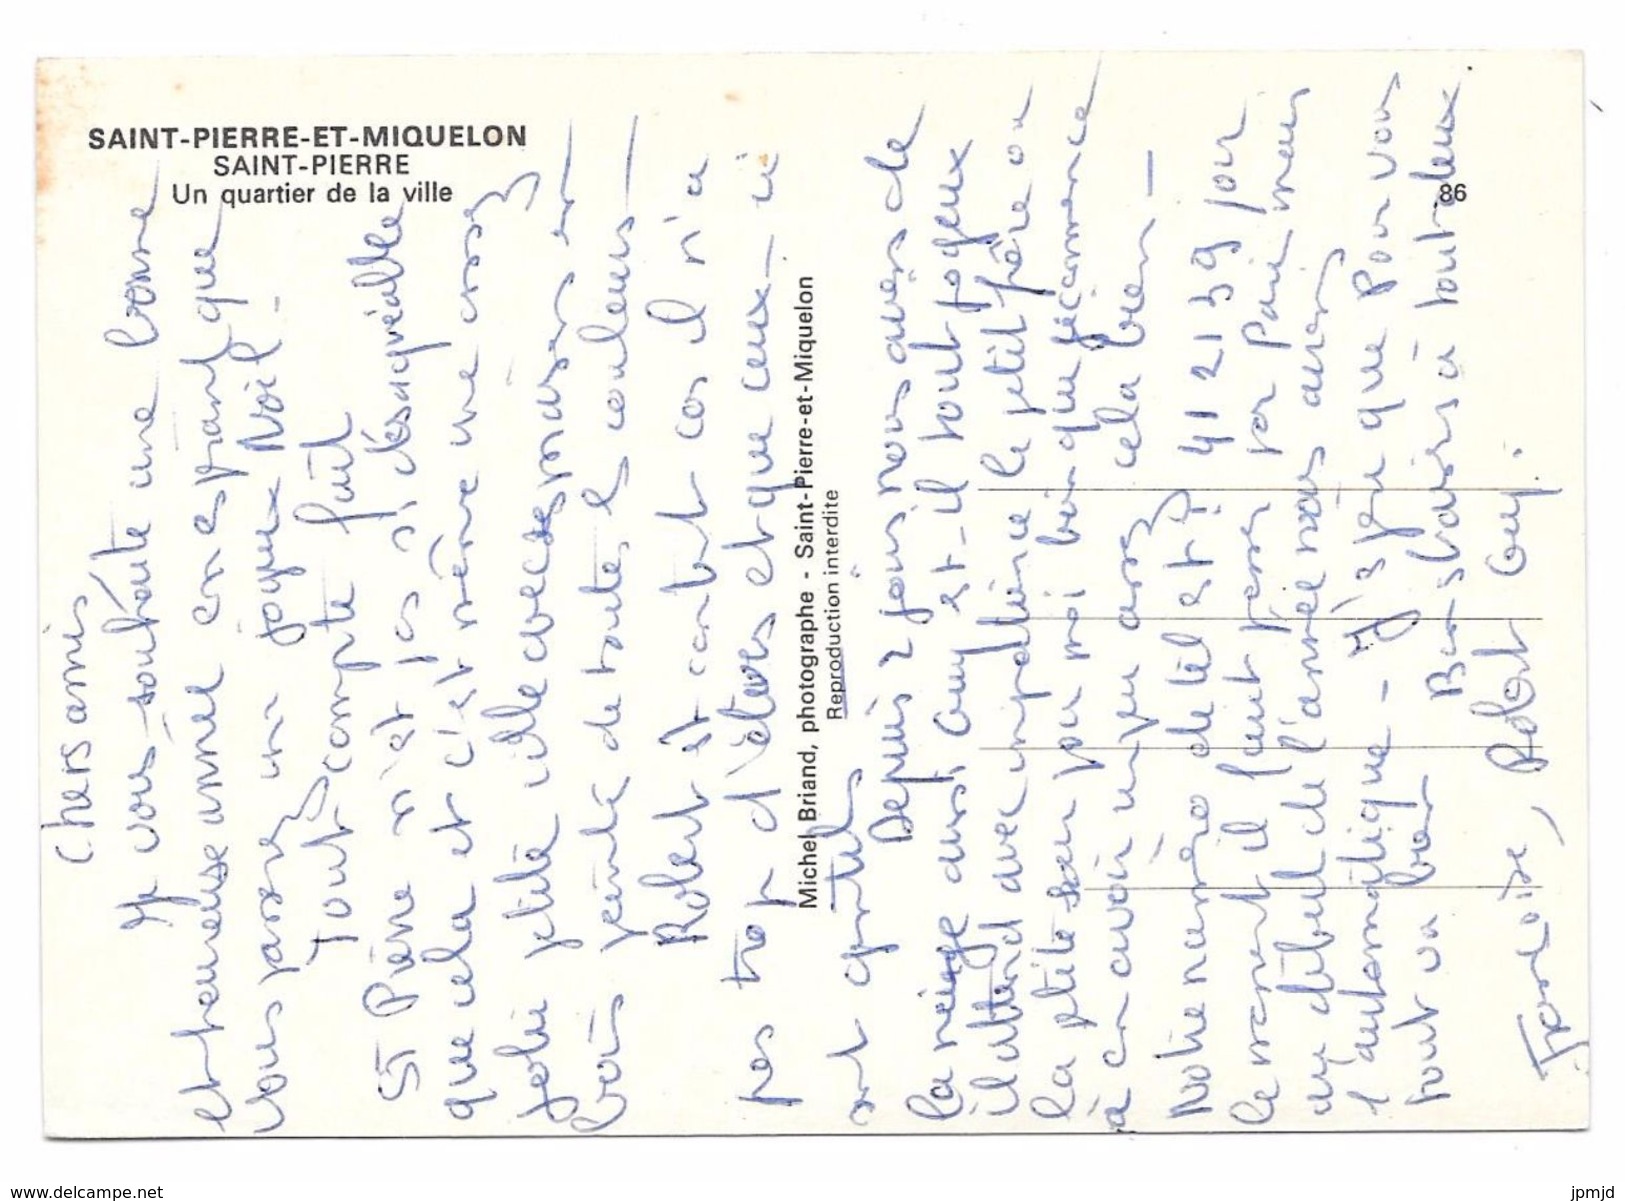 SAINT-PIERRE-ET-MIQUELON
SAINT-PIERRE
Un quartier de la ville
86
Michel Briand, photographe - Saint-Pierre-et-Miquelon
Reproduction interdite
Chers amis
Je vous souhaite une bonne
et heureuse année en espérant que
vous passerez un joyeux Noël -
Tout compte fait
St Pierre n'est pas si désagréable
que cela et c'est même une assez
jolie petite ville avec ses maisons en
bois peintes de toutes les couleurs -
Robert est content car il n'a
pas trop d'élèves et que ceux-ci
sont gentils
Depuis 2 jours nous avons de
la neige aussi Guy est-il tout joyeux
il attend avec impatience le petit frère ou
la petite sœur pour moi bien que je commence
à en avoir un peu assez cela va bien -
Notre numéro de tél est 41 21 59 pour
le moment il faut passer par Paris mais
au début de l'année nous aurons
l'automatique - J'espère que pour vous
tout va bien Bons baisers à tous deux
Françoise, Robert Guy.
www.delcampe.net
jpmjd